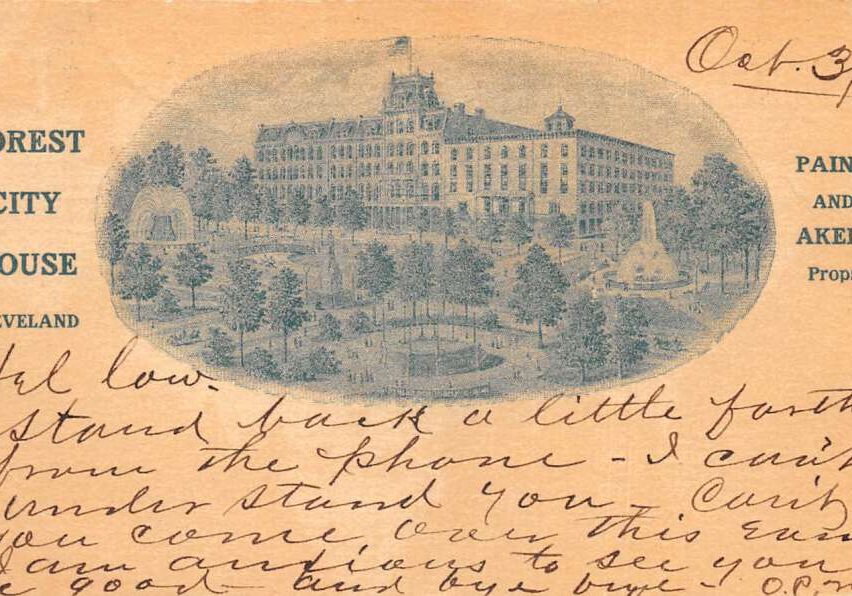 Oct. 3
OREST
CITY
OUSE
EVELAND
PAIN
AND
AKE
Props
el low-
stand back a little farth
from the phone - I can't
understand you - Can't
you come over this
I am anxious to see you
e good - and bye bye - O.P.